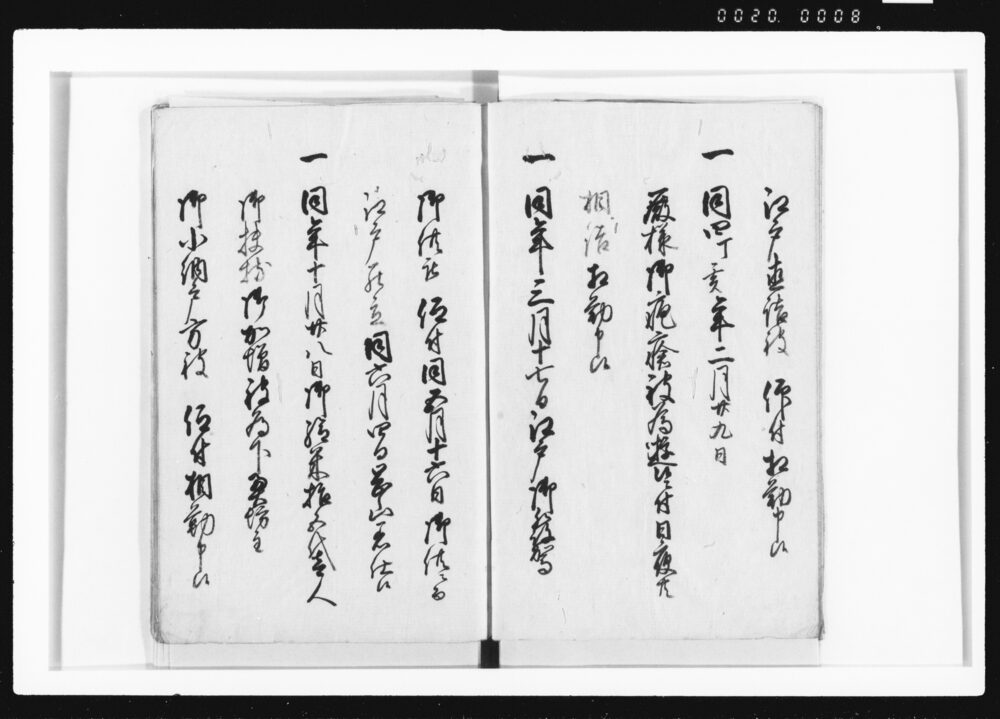 0020.0008
江戸直詰被　仰付相勤申候
一同四丁亥年二月廿九日
殿様御疱瘡被為遊候ニ付日夜共
相詰相勤申候
一同年三月十七日江戸御発駕
御供被　仰付同五月十六日御供ニ而
江戸発立同六月四日着仕候
一同年十月廿八日御給米拾石弐人
御扶持御加増被為下奥坊主
御小納戸方被　仰付相勤申候